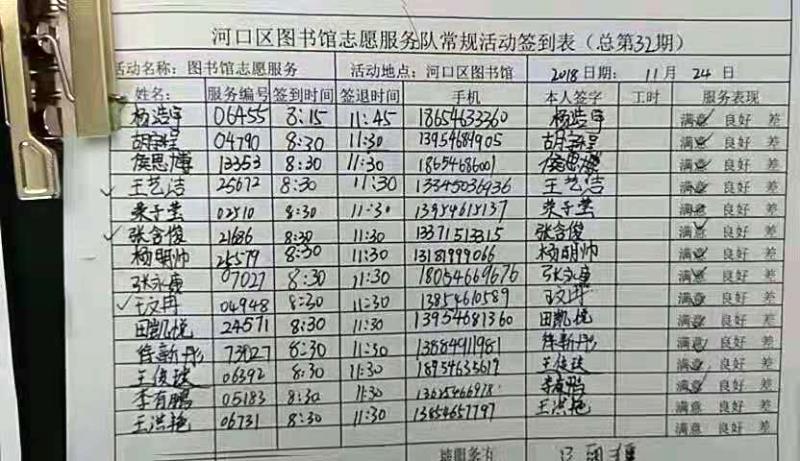 河口区图书馆志愿服务队常规活动签到表（总第32期）
活动名称：图书馆志愿服务 活动地点：河口区图书馆 2018日期：11月24日
姓名： 服务编号 签到时间 签退时间 手机 本人签字 工时 服务表现
杨浩宇 06455 8:15 11:45 18654633360 杨浩宇 满意 良好 差
04790 8:30 11:30 13954684905 满意 良好 差
侯思博 13353 8:30 11:30 18654686001 侯思博 满意 良好 差
王艺洁 25672 8:30 11:30 13345036936 王艺洁 满意 良好 差
荣子莹 02510 8:30 11:30 13954615137 荣子莹 满意 良好 差
张含俊 21686 8:30 11:30 13371513315 张含俊 满意 良好 差
杨明帅 24579 8:30 11:30 13181999066 杨明帅 满意 良好 差
张永康 07027 8:30 11:30 18054669676 张永康 满意 良好 差
王文冉 04948 8:30 11:30 13854610589 王文冉 满意 良好 差
田凯悦 24571 8:30 11:30 13954681360 田凯悦 满意 良好 差
徐新彤 73027 8:30 11:30 13884911981 徐新彤 满意 良好 差
06392 8:30 11:30 18954633619 满意 良好 差
李有鹏 05183 8:30 11:30 13625466978 李有鹏 满意 良好 差
王洪艳 06731 8:30 11:30 13854657797 王洪艳 满意 良好 差